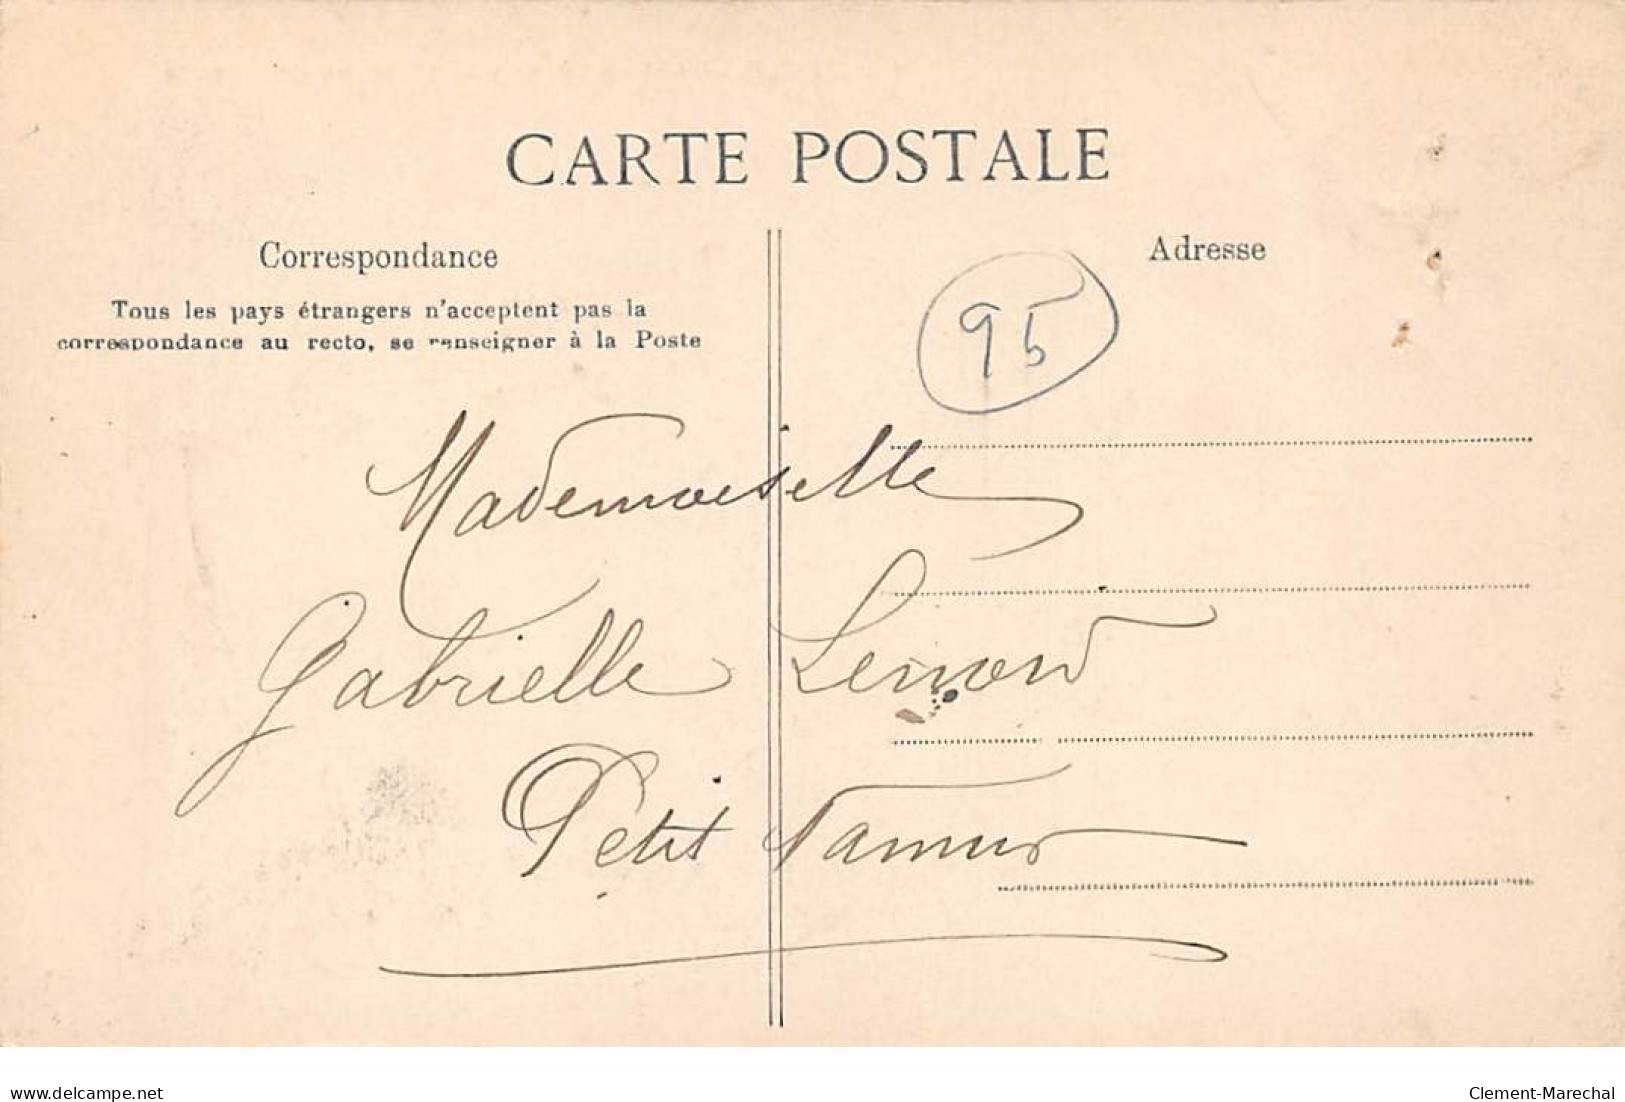 CARTE POSTALE
Correspondance
Adresse
Tous les pays étrangers n'acceptent pas la
correspondance au recto, se renseigner à la Poste
95
Mademoiselle
Gabrielle
Petit Namur
delcampe.net
Clement-Marechal